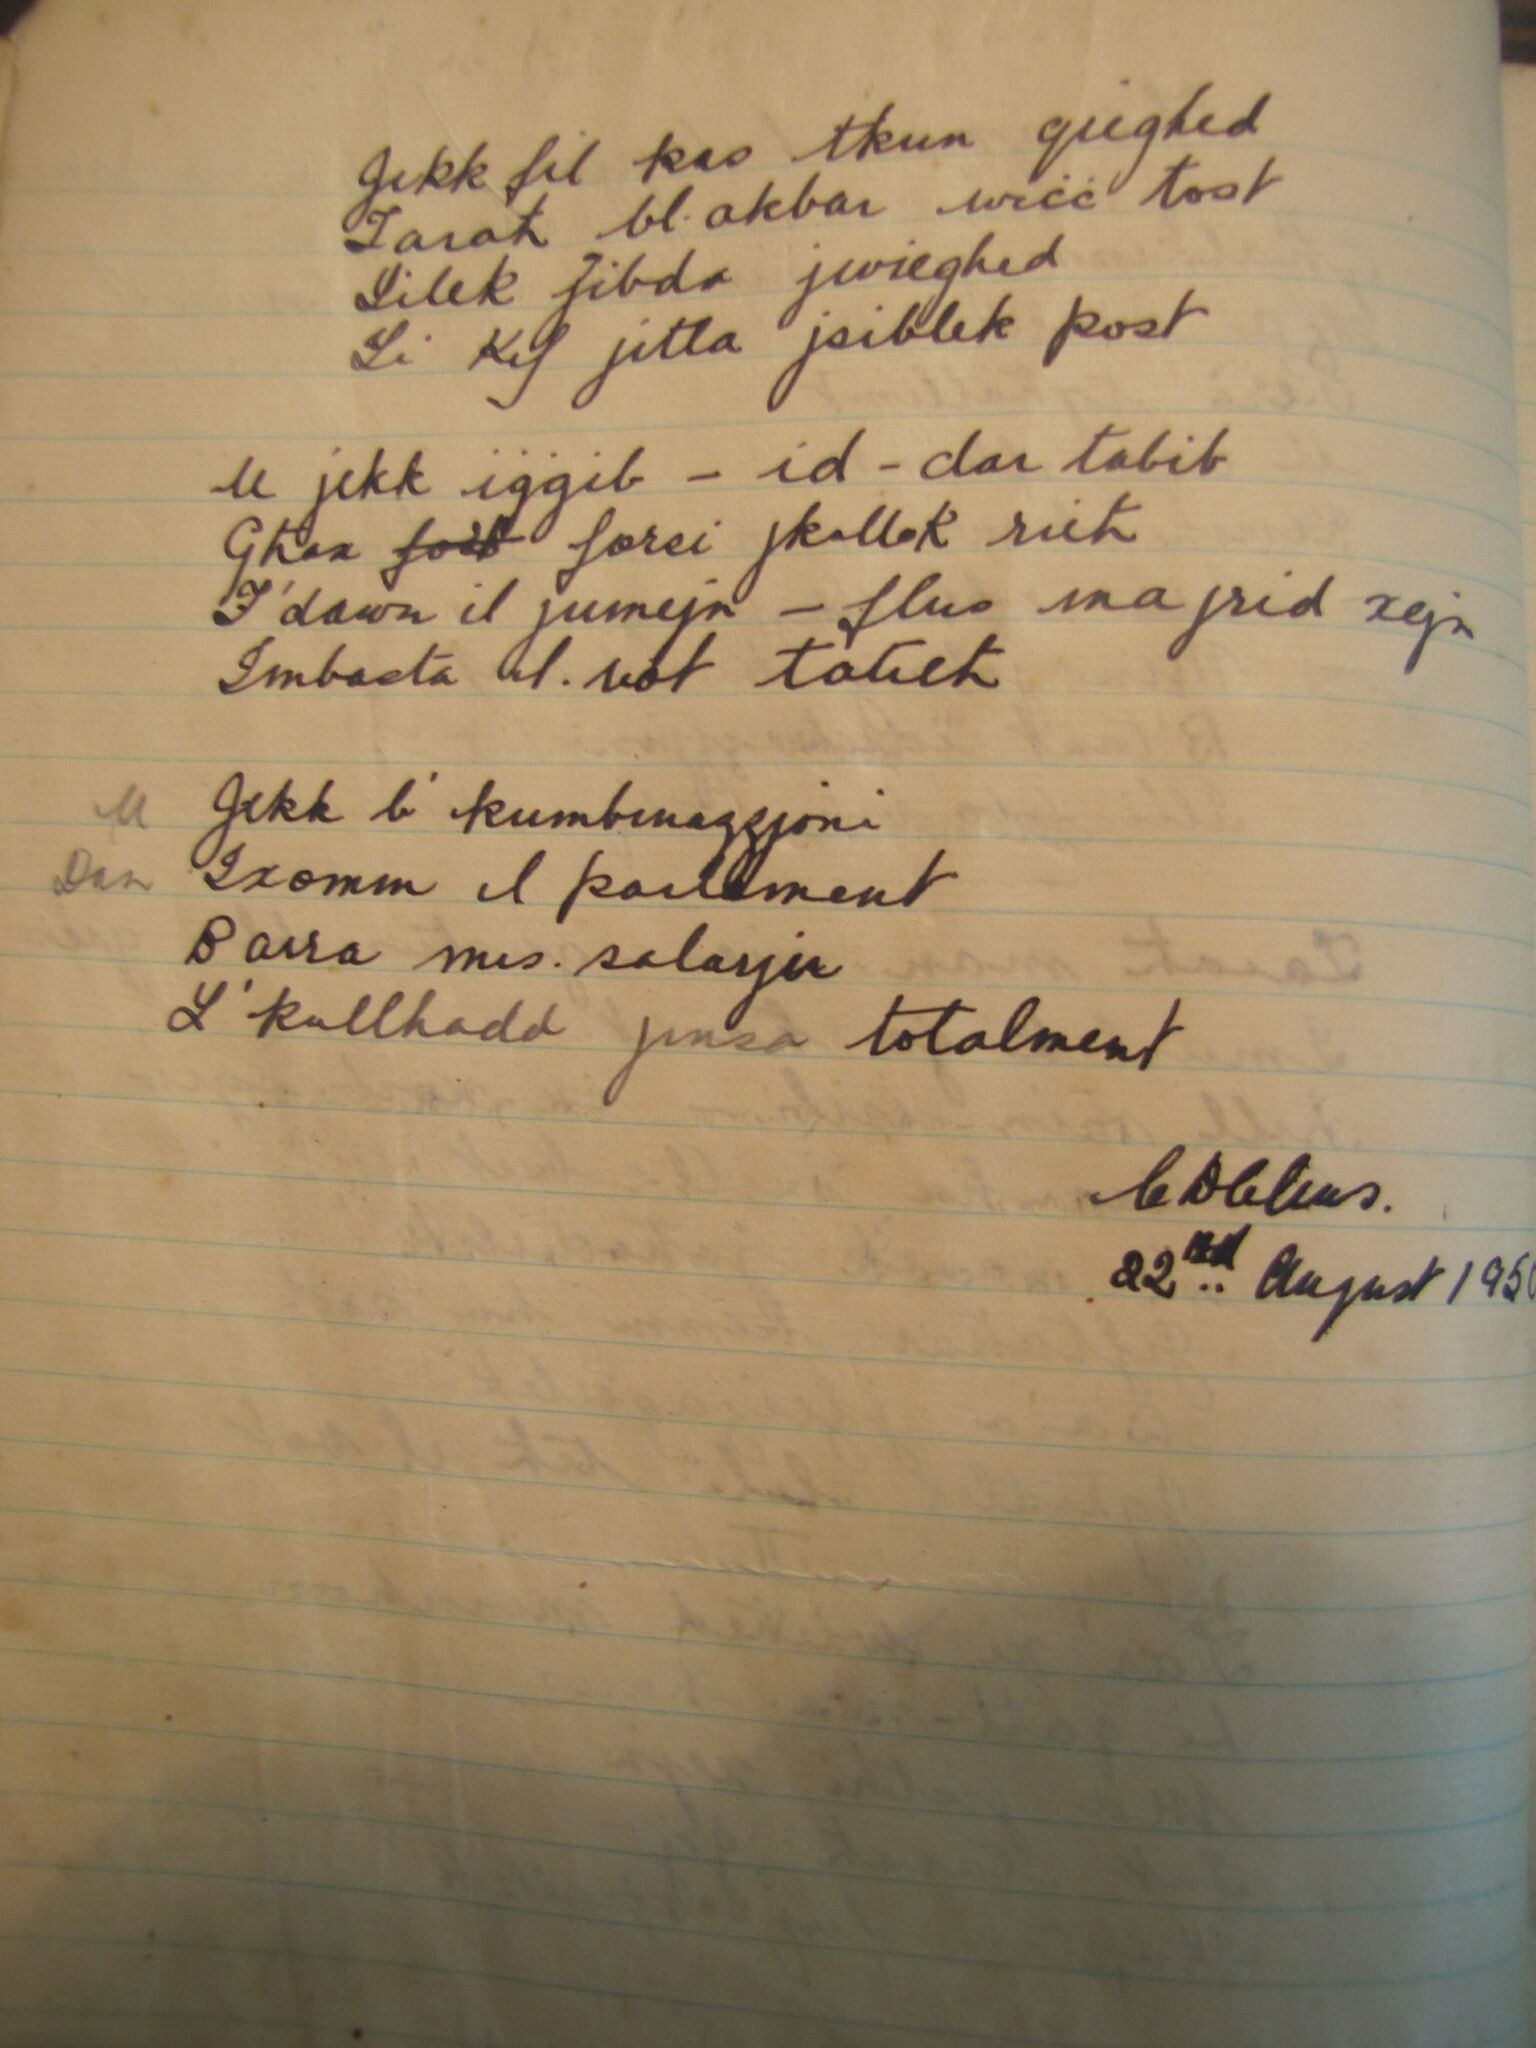 Jekk fil kas tkun qieghed
Tarah bl. akbar wiċċ tost
Lilek jibda jwieghed
Li Kif jitla jsiblek post
U jekk iġġib - id - dar tabib
Għax forsi jkollok rieħ
F'dawn il jumejn - flus ma jrid xejn
Imbasta il. vot tatieħ
U Jekk b' kumbinazzjoni
Dan Ixomm il parlament
Barra mis. salarju
L' kullhadd jinsa totalment
22nd August 195